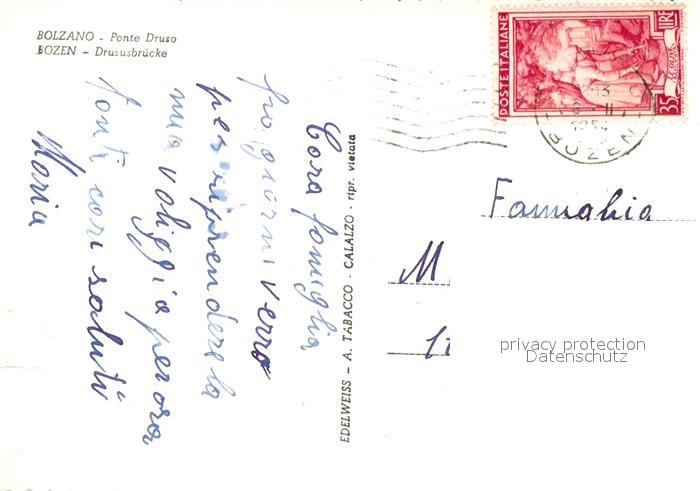 BOLZANO - Ponte Druso
BOZEN - Drususbrücke
Cara famiglia
fra giorni verrò
per riprendere la
mia valiggia per ora
tanti cari saluti
Maria
EDELWEISS - A. TABACCO - CALALZO - ripr. vietata
POSTE ITALIANE
LIRE
35
BOZEN
Famiglia
M
privacy protection
Datenschutz